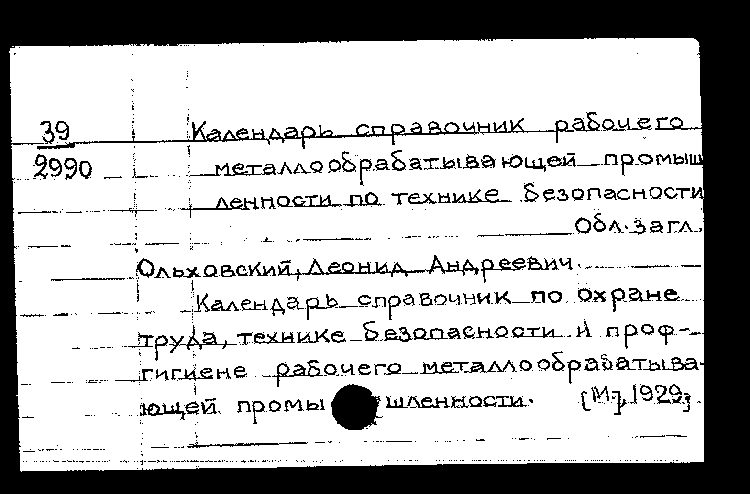 39 Календарь справочник рабочего
2990 металлообрабатывающей промыш
ленности по технике безопасности
Обл. загл.
Ольховский, Леонид Андреевич.
Календарь справочник по охране
труда, технике безопасности и проф-
гигиене рабочего металлообрабатыва-
ющей промышленности. [М.], 1929].